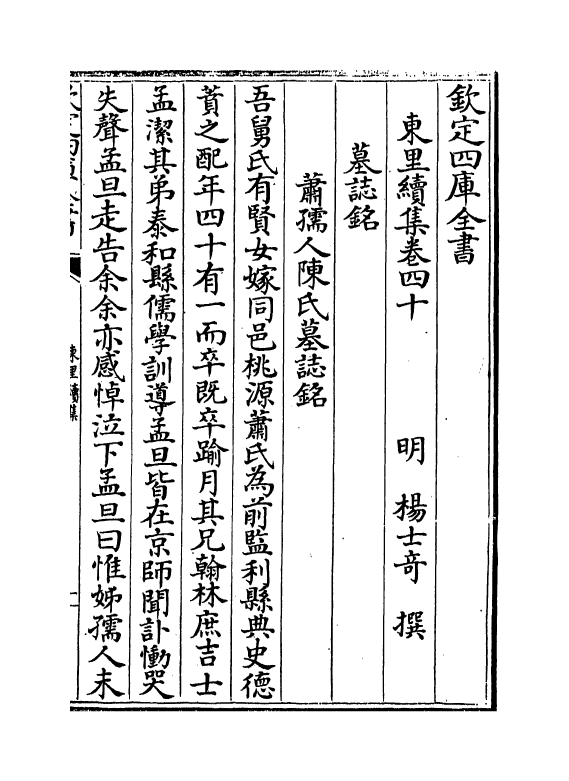 欽定四庫全書
東里續集卷四十　明　楊士奇　撰
墓誌銘
蕭孺人陳氏墓誌銘
吾舅氏有賢女嫁同邑桃源蕭氏為前監利縣典史德
蕡之配年四十有一而卒既卒踰月其兄翰林庶吉士
孟潔其弟泰和縣儒學訓導孟旦皆在京師聞訃慟哭
失聲孟旦走告余余亦感悼泣下孟旦曰惟姊孺人未
東里續集